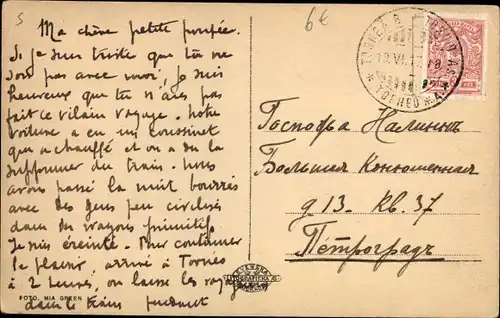 5
6€
Ma chère petite poupée.
Si je suis triste que tu ne
sois pas avec moi, je suis
heureuse que tu n'aies pas
fait ce vilain voyage. Notre
voiture a eu un coussinet
qui a chauffé et on a dû la
supprimer du train. Nous
avons passé la nuit bourrés
avec des gens peu civilisés
dans des wagons primitifs
Je suis éreintée. Pour continuer
le plaisir, arrivé à Tornéo
à 2 heures, on laisse les voyageurs
dans le train pendant
FOTO. MIA GREEN
Госпожа Налинков
Большая Конюшенная
д 13. Кв. 37
Петроградъ